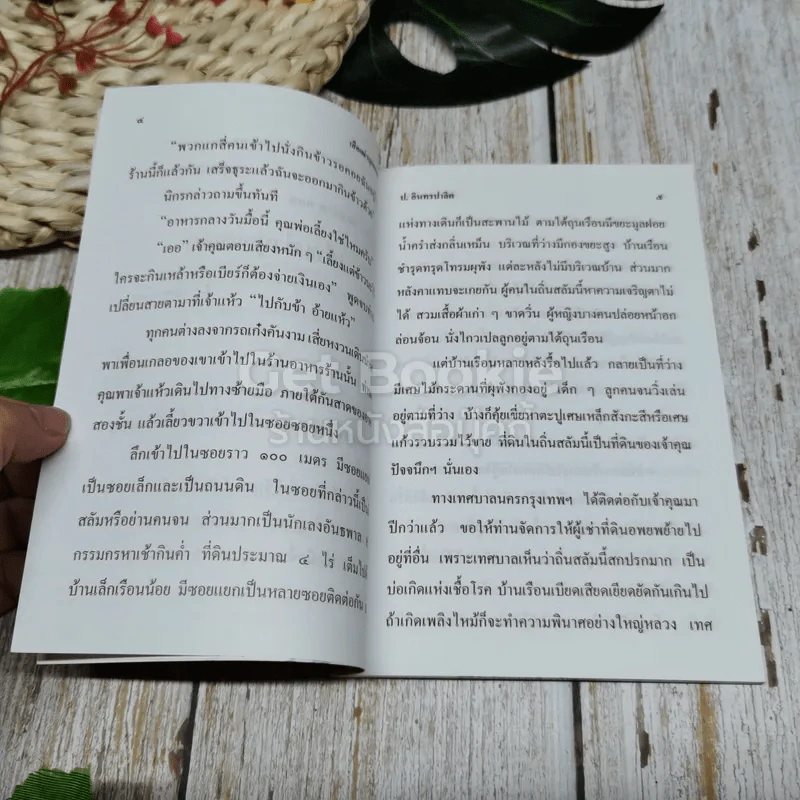 ๔
“พวกแกสี่คนเข้าไปนั่งกินข้าวรอคอยฉัน
ร้านนี้ก็แล้วกัน เสร็จธุระแล้วฉันจะออกมากินข้าวด้วย
นิกรกล่าวถามขึ้นทันที
“อาหารกลางวันมื้อนี้ คุณพ่อเลี้ยงใช่ไหมครับ”
“เออ” เจ้าคุณตอบเสียงหนัก ๆ “เลี้ยงแต่ข้าว
ใครจะกินเหล้าหรือเบียร์ก็ต้องจ่ายเงินเอง” พูดจบ
เปลี่ยนสายตามาที่เจ้าแห้ว “ไปกับข้า อ้ายแห้ว”
ทุกคนต่างลงจากรถเก๋งคันงาม เสี่ยหงวนเดิน
พาเพื่อนเกลอของเขาเข้าไปในร้านอาหารร้านนั้น
คุณพาเจ้าแห้วเดินไปทางซ้ายมือ ภายใต้กันสาดของ
สองชั้น แล้วเลี้ยวขวาเข้าไปในซอยซอยหนึ่ง
ลึกเข้าไปในซอยราว ๑๐๐ เมตร มีซอย
เป็นซอยเล็กและเป็นถนนดิน ในซอยที่กล่าวนี้
สลัมหรือย่านคนจน ส่วนมากเป็นนักเลงอันธพาล
กรรมกรหาเช้ากินค่ำ ที่ดินประมาณ ๔ ไร่ เต็มไป
บ้านเล็กเรือนน้อย มีซอยแยกเป็นหลายซอยติดต่อกัน
ป. อินทรปาลิต
๕
แห่งทางเดินก็เป็นสะพานไม้ ตามใต้ถุนเรือนมีขยะมูลฝอย
น้ำครำส่งกลิ่นเหม็น บริเวณที่ว่างมีกองขยะสูง บ้านเรือน
ชำรุดทรุดโทรมผุพัง แต่ละหลังไม่มีบริเวณบ้าน ส่วนมาก
หลังคาแทบจะเกยกัน ผู้คนในถิ่นสลัมนี้หาความเจริญตาไม่
ได้ สวมเสื้อผ้าเก่า ๆ ขาดวิ่น ผู้หญิงบางคนปล่อยหน้าอก
ล่อนจ้อน นั่งไกวเปลลูกอยู่ตามใต้ถุนเรือน
แต่บ้านเรือนหลายหลังรื้อไปแล้ว กลายเป็นที่ว่าง
มีเศษไม้กระดานที่ผุพังกองอยู่ เด็ก ๆ ลูกคนจนวิ่งเล่น
อยู่ตามที่ว่าง บ้างก็คุ้ยเขี่ยหาตะปูเศษเหล็กสังกะสีหรือเศษ
แก้วรวบรวมไว้ขาย ที่ดินในถิ่นสลัมนี้เป็นที่ดินของเจ้าคุณ
ปัจจนึกฯ นั่นเอง
ทางเทศบาลนครกรุงเทพฯ ได้ติดต่อกับเจ้าคุณมา
ปีกว่าแล้ว ขอให้ท่านจัดการให้ผู้เช่าที่ดินอพยพย้ายไป
อยู่ที่อื่น เพราะเทศบาลเห็นว่าถิ่นสลัมนี้สกปรกมาก เป็น
บ่อเกิดแห่งเชื้อโรค บ้านเรือนเบียดเสียดเยียดยัดกันเกินไป
ถ้าเกิดเพลิงไหม้ก็จะทำความพินาศอย่างใหญ่หลวง เทศ
Get Bookie
ร้านหนังสือบุ๊คกี้